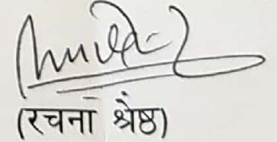 (रचना श्रेष्ठ)